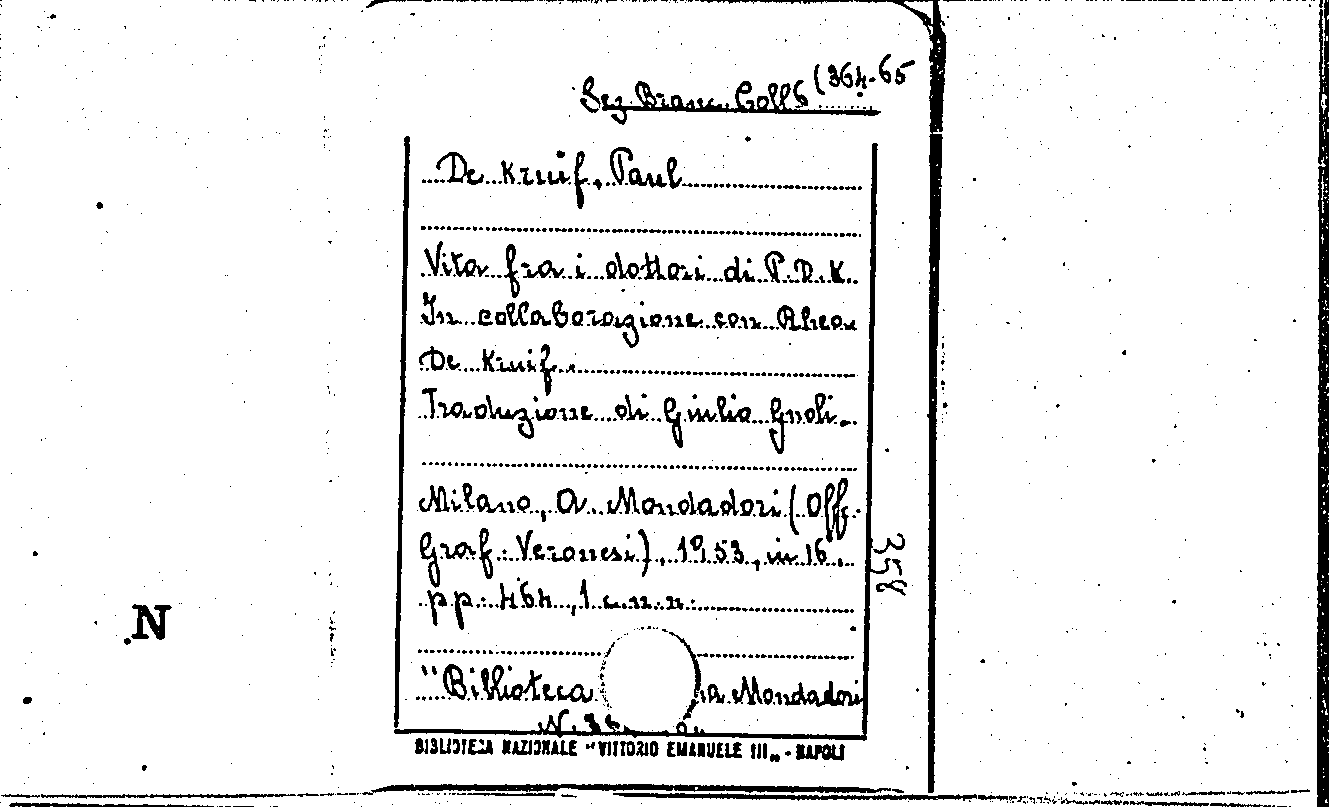 Sez. Branc. Coll 6 (364-65
De Kruif, Paul
Vita fra i dottori di P. D. K.
In collaborazione con Rhea
De Kruif.
Traduzione di Giulia Gnoli.
Milano, A. Mondadori (Off.
Graf. Veronesi), 1953, in 16.
pp. 464, 1 c. n. n.
"Biblioteca na Mondadori
N.
358
N
BIBLIOTECA NAZIONALE "VITTORIO EMANUELE III„ - NAPOLI